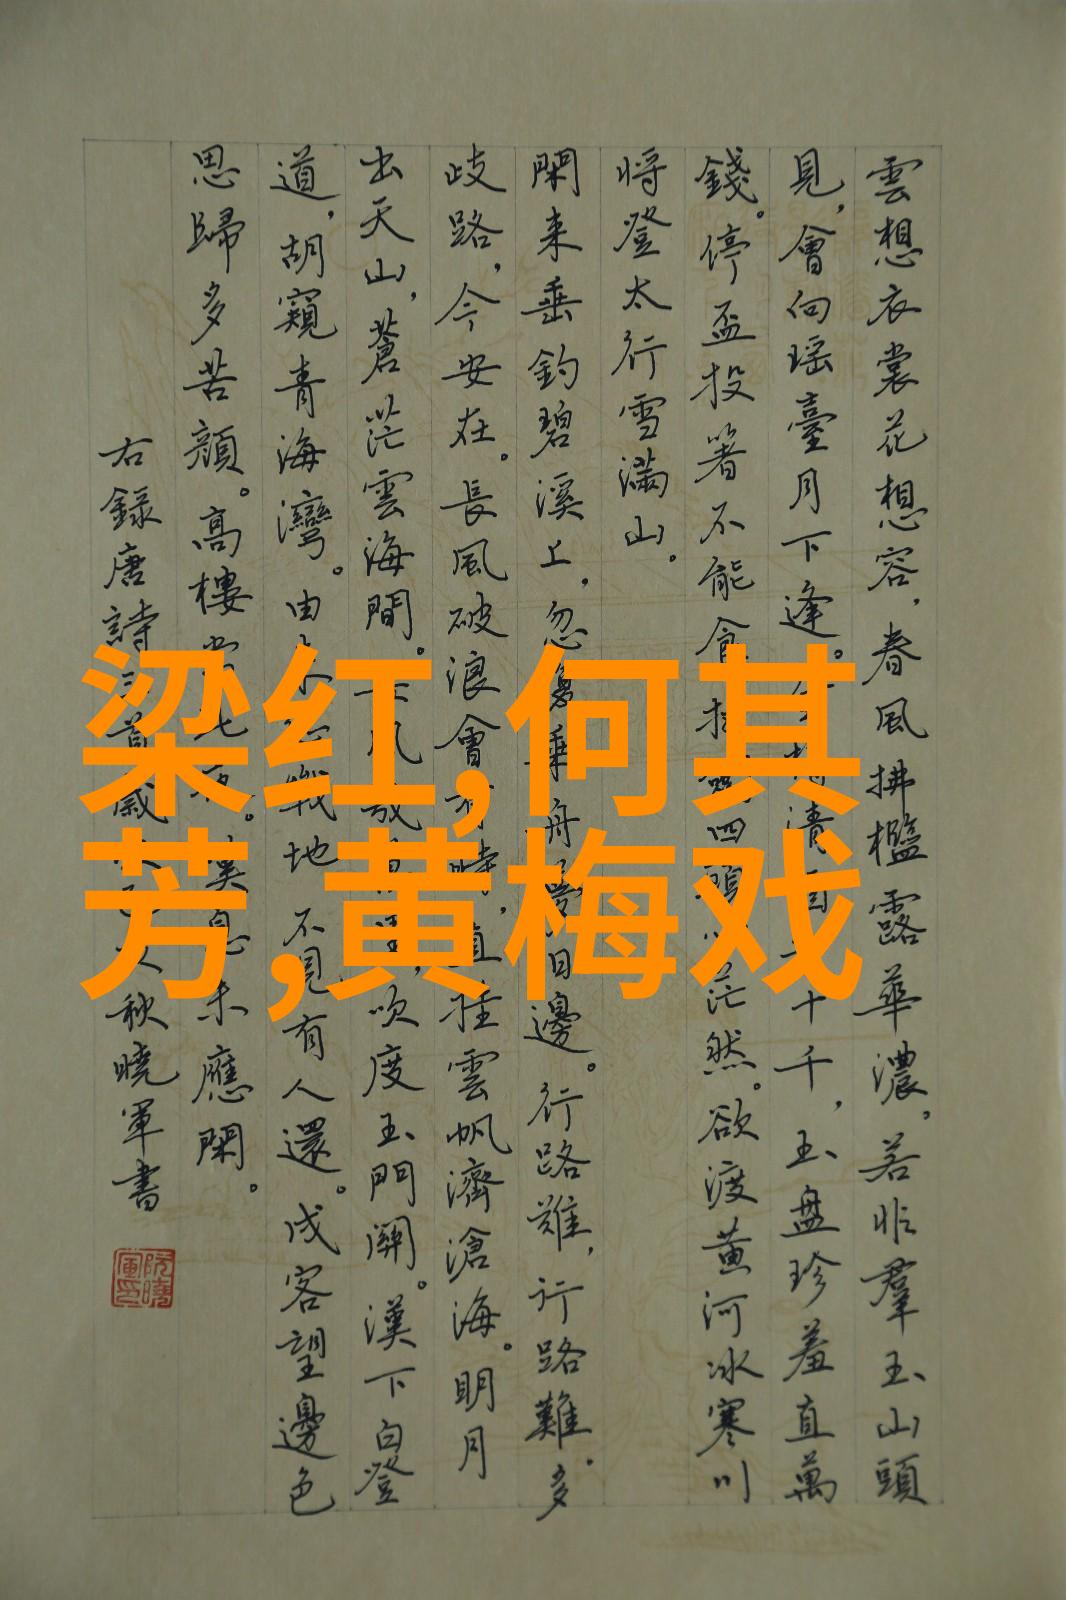 雲想衣裳花想容，春風拂檻露華濃。若非羣玉山頭
見，會向瑶臺月下逢。清十千，玉盤珍羞直萬
錢。停盃投箸不能食四頋心茫然。欲渡黄河冰寒川
将登太行雪滿山。
閑来垂釣碧溪上，忽復乘舟夢日邊。行路難，行路難。多
歧路，今安在。長風破浪會有時，直挂雲帆濟滄海。明月
出天山，蒼茫雲海間。長風幾萬里，吹度玉門關。漢下白登
道，胡窺青海灣。由来征戰地不見有人還。戍客望邊色
思歸多苦顔。高樓當此夜。嘆息未應閑。
右録唐詩三首歲秋曉軍書
阮曉軍印
梁红,何其
芳,黄梅戏